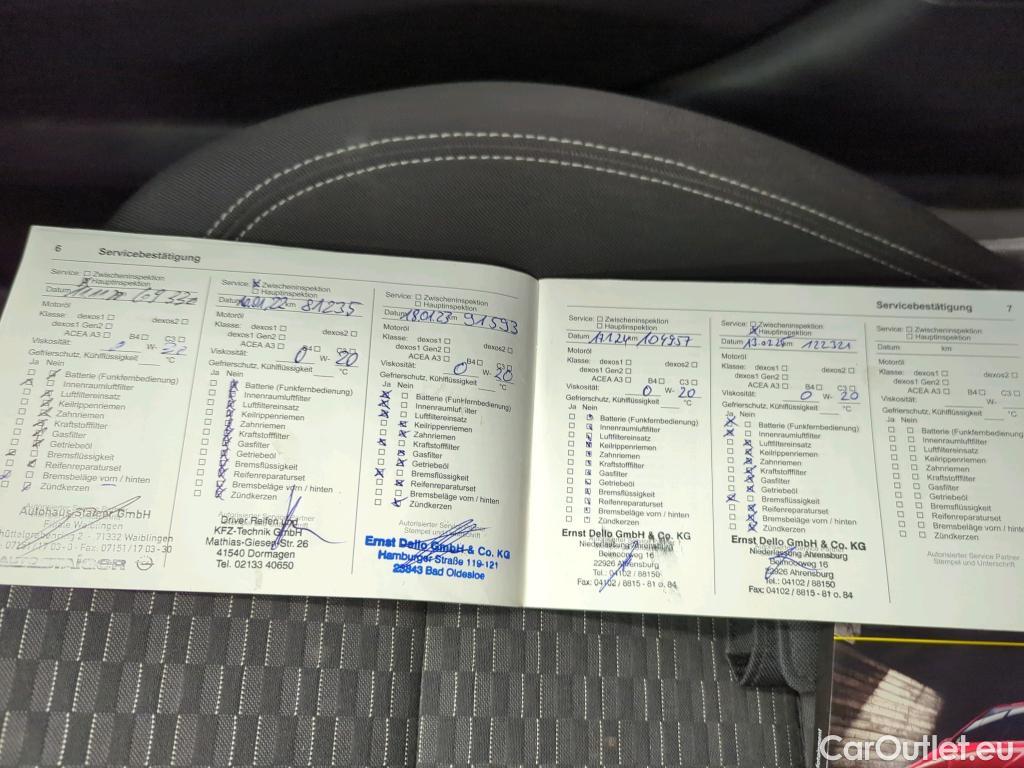 6 Servicebestätigung
Service: Zwischeninspektion
Hauptinspektion
Datum
Motoröl
Klasse: dexos1 dexos2
dexos1 Gen2
ACEA A3 B4 C3
Viskosität: W-
Gefrierschutz, Kühlflüssigkeit °C
Ja Nein
Batterie (Funkfernbedienung)
Innenraumluftfilter
Luftfiltereinsatz
Keilrippenriemen
Zahnriemen
Kraftstofffilter
Gasfilter
Getriebeöl
Bremsflüssigkeit
Reifenreparaturset
Bremsbeläge vorn / hinten
Zündkerzen
GmbH
Filiale Waiblingen
2 - 71332 Waiblingen
07151/17 03-0 - Fax: 07151/17 03-30
Service: Zwischeninspektion
Hauptinspektion
Datum km 81235
Motoröl
Klasse: dexos1 dexos2
dexos1 Gen2
ACEA A3 B4 C3
Viskosität: 0 W- 20
Gefrierschutz, Kühlflüssigkeit °C
Ja Nein
Batterie (Funkfernbedienung)
Innenraumluftfilter
Luftfiltereinsatz
Keilrippenriemen
Zahnriemen
Kraftstofffilter
Gasfilter
Getriebeöl
Bremsflüssigkeit
Reifenreparaturset
Bremsbeläge vorn / hinten
Zündkerzen
Driver Reifen und
KFZ-Technik GmbH
Mathias-Giesen-Str. 26
41540 Dormagen
Tel. 02133 40650
Service: Zwischeninspektion
Hauptinspektion
Datum 18.01.23 km 91593
Motoröl
Klasse: dexos1 dexos2
dexos1 Gen2
ACEA A3 B4
Viskosität: 0 W-
Gefrierschutz, Kühlflüssigkeit °C
Ja Nein
Batterie (Funkfernbedienung)
Luftfiltereinsatz
Keilrippenriemen
Zahnriemen
Kraftstofffilter
Gasfilter
Getriebeöl
Bremsflüssigkeit
Reifenreparaturset
Bremsbeläge vorn / hinten
Zündkerzen
Autorisierter Service Partner
Stempel und Unterschrift
Ernst Dello GmbH & Co. KG
Hamburger Straße 119-121
23843 Bad Oldesloe
Servicebestätigung 7
Service: Zwischeninspektion
Hauptinspektion
Datum km 104957
Motoröl
Klasse: dexos1 dexos2
dexos1 Gen2
ACEA A3 B4 C3
Viskosität: 0 W- 20
Gefrierschutz, Kühlflüssigkeit °C
Ja Nein
Batterie (Funkfernbedienung)
Innenraumluftfilter
Luftfiltereinsatz
Keilrippenriemen
Zahnriemen
Kraftstofffilter
Gasfilter
Getriebeöl
Bremsflüssigkeit
Reifenreparaturset
Bremsbeläge vorn / hinten
Zündkerzen
Ernst Dello GmbH & Co. KG
Niederlassung Ahrensburg
Beimoorweg 16
22926 Ahrensburg
Tel.: 04102 / 88150
Fax: 04102 / 8815 - 81 o. 84
Service: Zwischeninspektion
Hauptinspektion
Datum km 122321
Motoröl
Klasse: dexos1 dexos2
dexos1 Gen2
ACEA A3 B4 C3
Viskosität: 0 W- 20
Gefrierschutz, Kühlflüssigkeit °C
Ja Nein
Batterie (Funkfernbedienung)
Innenraumluftfilter
Luftfiltereinsatz
Keilrippenriemen
Zahnriemen
Kraftstofffilter
Gasfilter
Getriebeöl
Bremsflüssigkeit
Reifenreparaturset
Bremsbeläge vorn / hinten
Zündkerzen
Ernst Dello GmbH & Co. KG
Niederlassung Ahrensburg
Beimoorweg 16
22926 Ahrensburg
Tel.: 04102 / 88150
Fax: 04102 / 8815 - 81 o. 84
Service: Zwischeninspektion
Hauptinspektion
Datum km
Motoröl
Klasse: dexos1 dexos2
dexos1 Gen2
ACEA A3 B4 C3
Viskosität: W-
Gefrierschutz, Kühlflüssigkeit °C
Ja Nein
Batterie (Funkfernbedienung
Innenraumluftfilter
Luftfiltereinsatz
Keilrippenriemen
Zahnriemen
Kraftstofffilter
Gasfilter
Getriebeöl
Bremsflüssigkeit
Reifenreparaturset
Bremsbeläge vorn / hinten
Zündkerzen
Autorisierter Service Partner
Stempel und Unterschrift
CarOutlet.eu